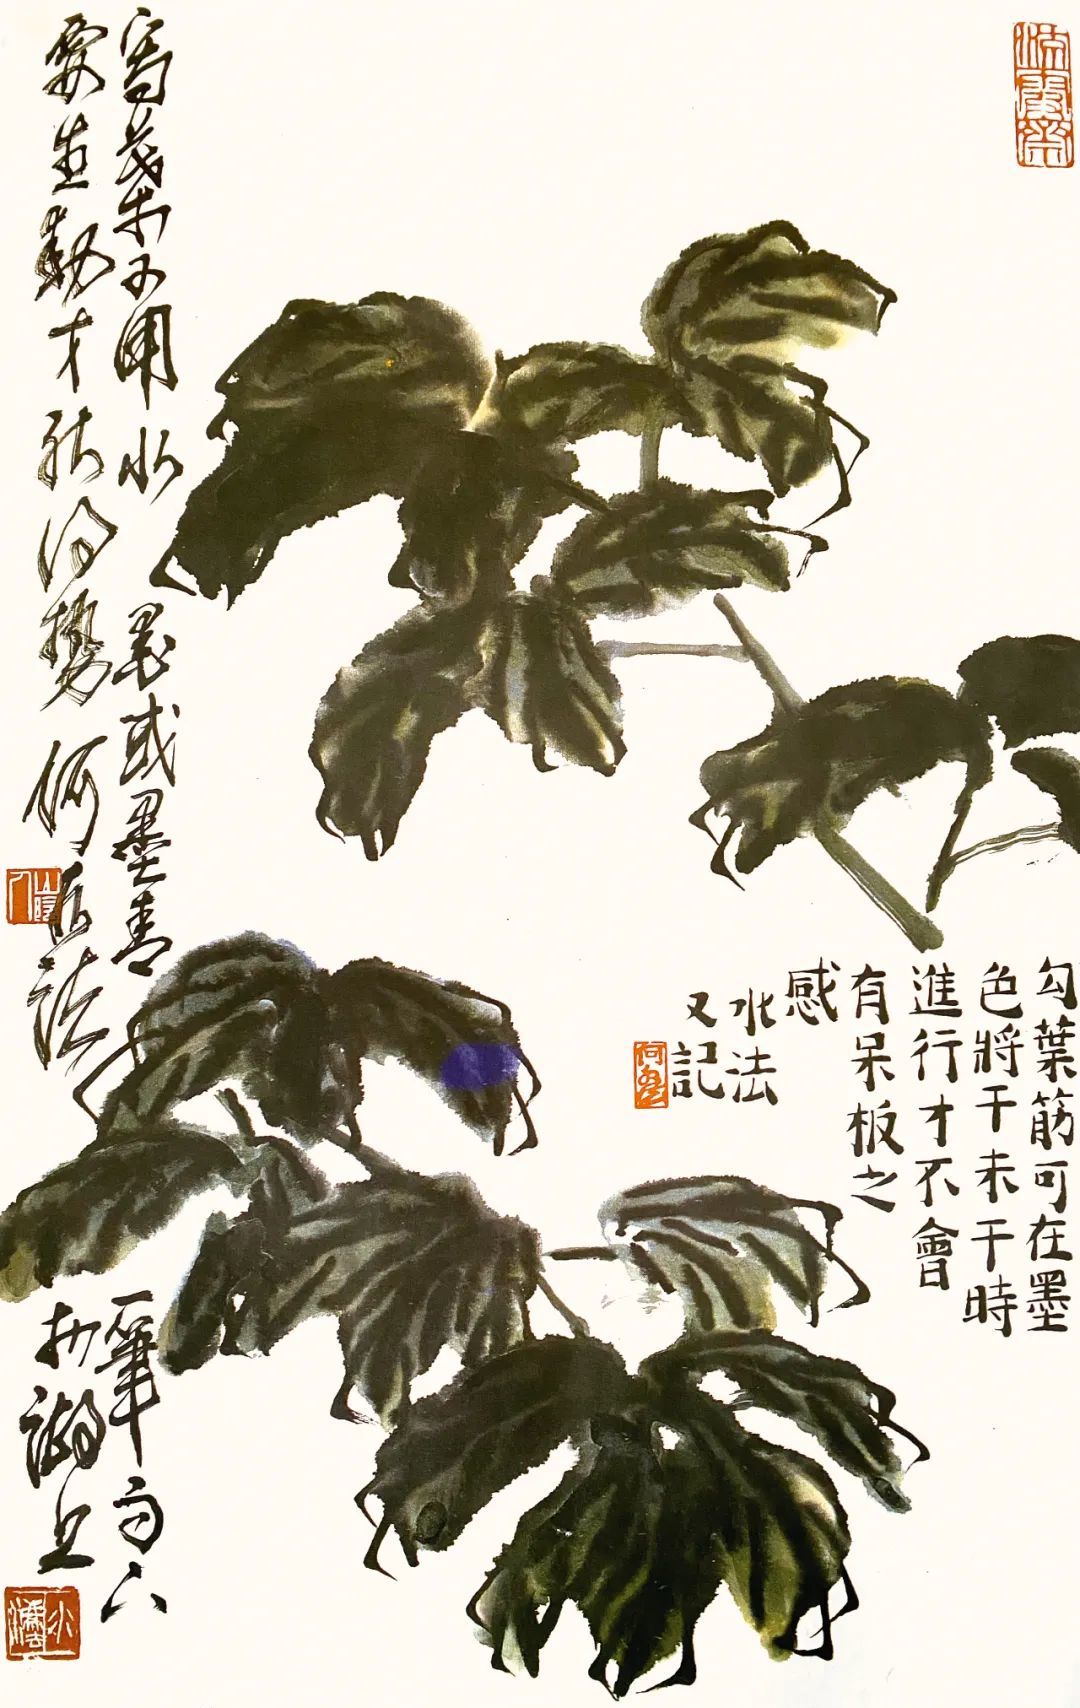 勾葉筋可在墨
色將干未干時
進行才不會
有呆板之
感
水法
又記
寫葉子用水墨或墨青一筆而下
要生動才能得勢何水法於湖上